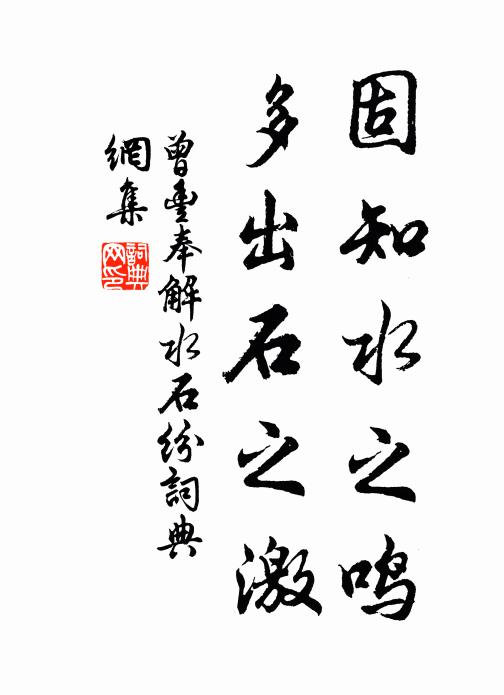 固知水之鸣
多出石之激
曾豊奉解水石纷詞典
網集
詞典
网印